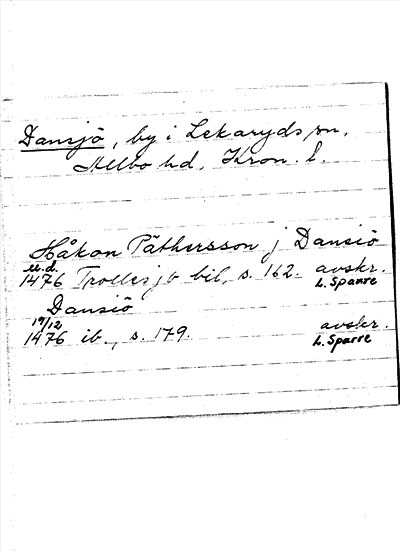 Dansjö, by i Lekaryds sn,
Allbo hd, Kron. l.
Håkon Päthersson j Dansiö
u.d.
1476 Trolles jb bil, s. 162. avskr.
L. Sparre
Dansiö
17/12
1476 ib., s. 179. avskr.
L. Sparre